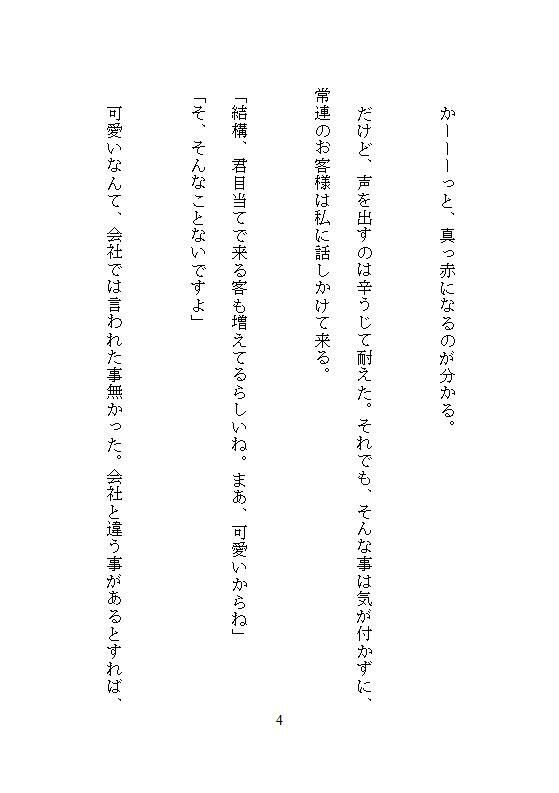 かーーーっと、真っ赤になるのが分かる。
だけど、声を出すのは辛うじて耐えた。それでも、そんな事は気が付かずに、
常連のお客様は私に話しかけて来る。
「結構、君目当てで来る客も増えてるらしいね。まあ、可愛いからね」
「そ、そんなことないですよ」
可愛いなんて、会社では言われた事無かった。会社と違う事があるとすれば、
4